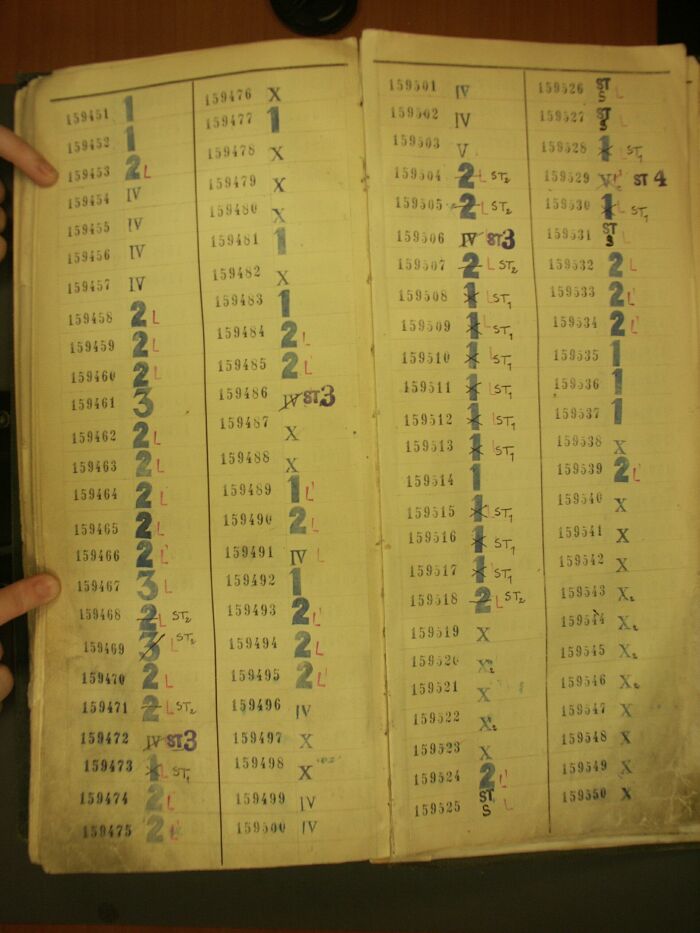 159451 1
159452 1
159453 2 L
159454 IV
159455 IV
159456 IV
159457 IV
159458 2 L
159459 2 L
159460 2 L
159461 3
159462 2 L
159463 2 L
159464 2 L
159465 2 L
159466 2 L
159467 3 L
159468 2 L ST2
159469 3 L ST2
159470 2 L
159471 2 L ST2
159472 IV ST3
159473 1 L ST1
159474 2 L
159475 2 L
159476 X
159477 1
159478 X
159479 X
159480 X
159481 1
159482 X
159483 1
159484 2 L
159485 2 L
159486 IV ST3
159487 X
159488 X
159489 1 L
159490 2 L
159491 IV L
159492 1
159493 2 L
159494 2 L
159495 2 L
159496 IV
159497 X
159498 X
159499 IV
159500 IV
159501 IV
159502 IV
159503 V
159504 2 L ST2
159505 2 L ST2
159506 IV ST3
159507 2 L ST2
159508 1 L ST1
159509 1 L ST1
159510 1 L ST1
159511 1 L ST1
159512 1 L ST1
159513 1 L ST1
159514 1
159515 1 L ST1
159516 1 L ST1
159517 1 L ST1
159518 2 L ST2
159519 X
159520 X2
159521 X
159522 X2
159523 X
159524 2 L
159525 ST S L
159526 ST S L
159527 ST S L
159528 1 L ST1
159529 V L ST 4
159530 1 L ST1
159531 ST S L
159532 2 L
159533 2 L
159534 2 L
159535 1
159536 1
159537 1
159538 X
159539 2 L
159540 X
159541 X
159542 X
159543 X2
159544 X2
159545 X2
159546 X2
159547 X
159548 X
159549 X
159550 X